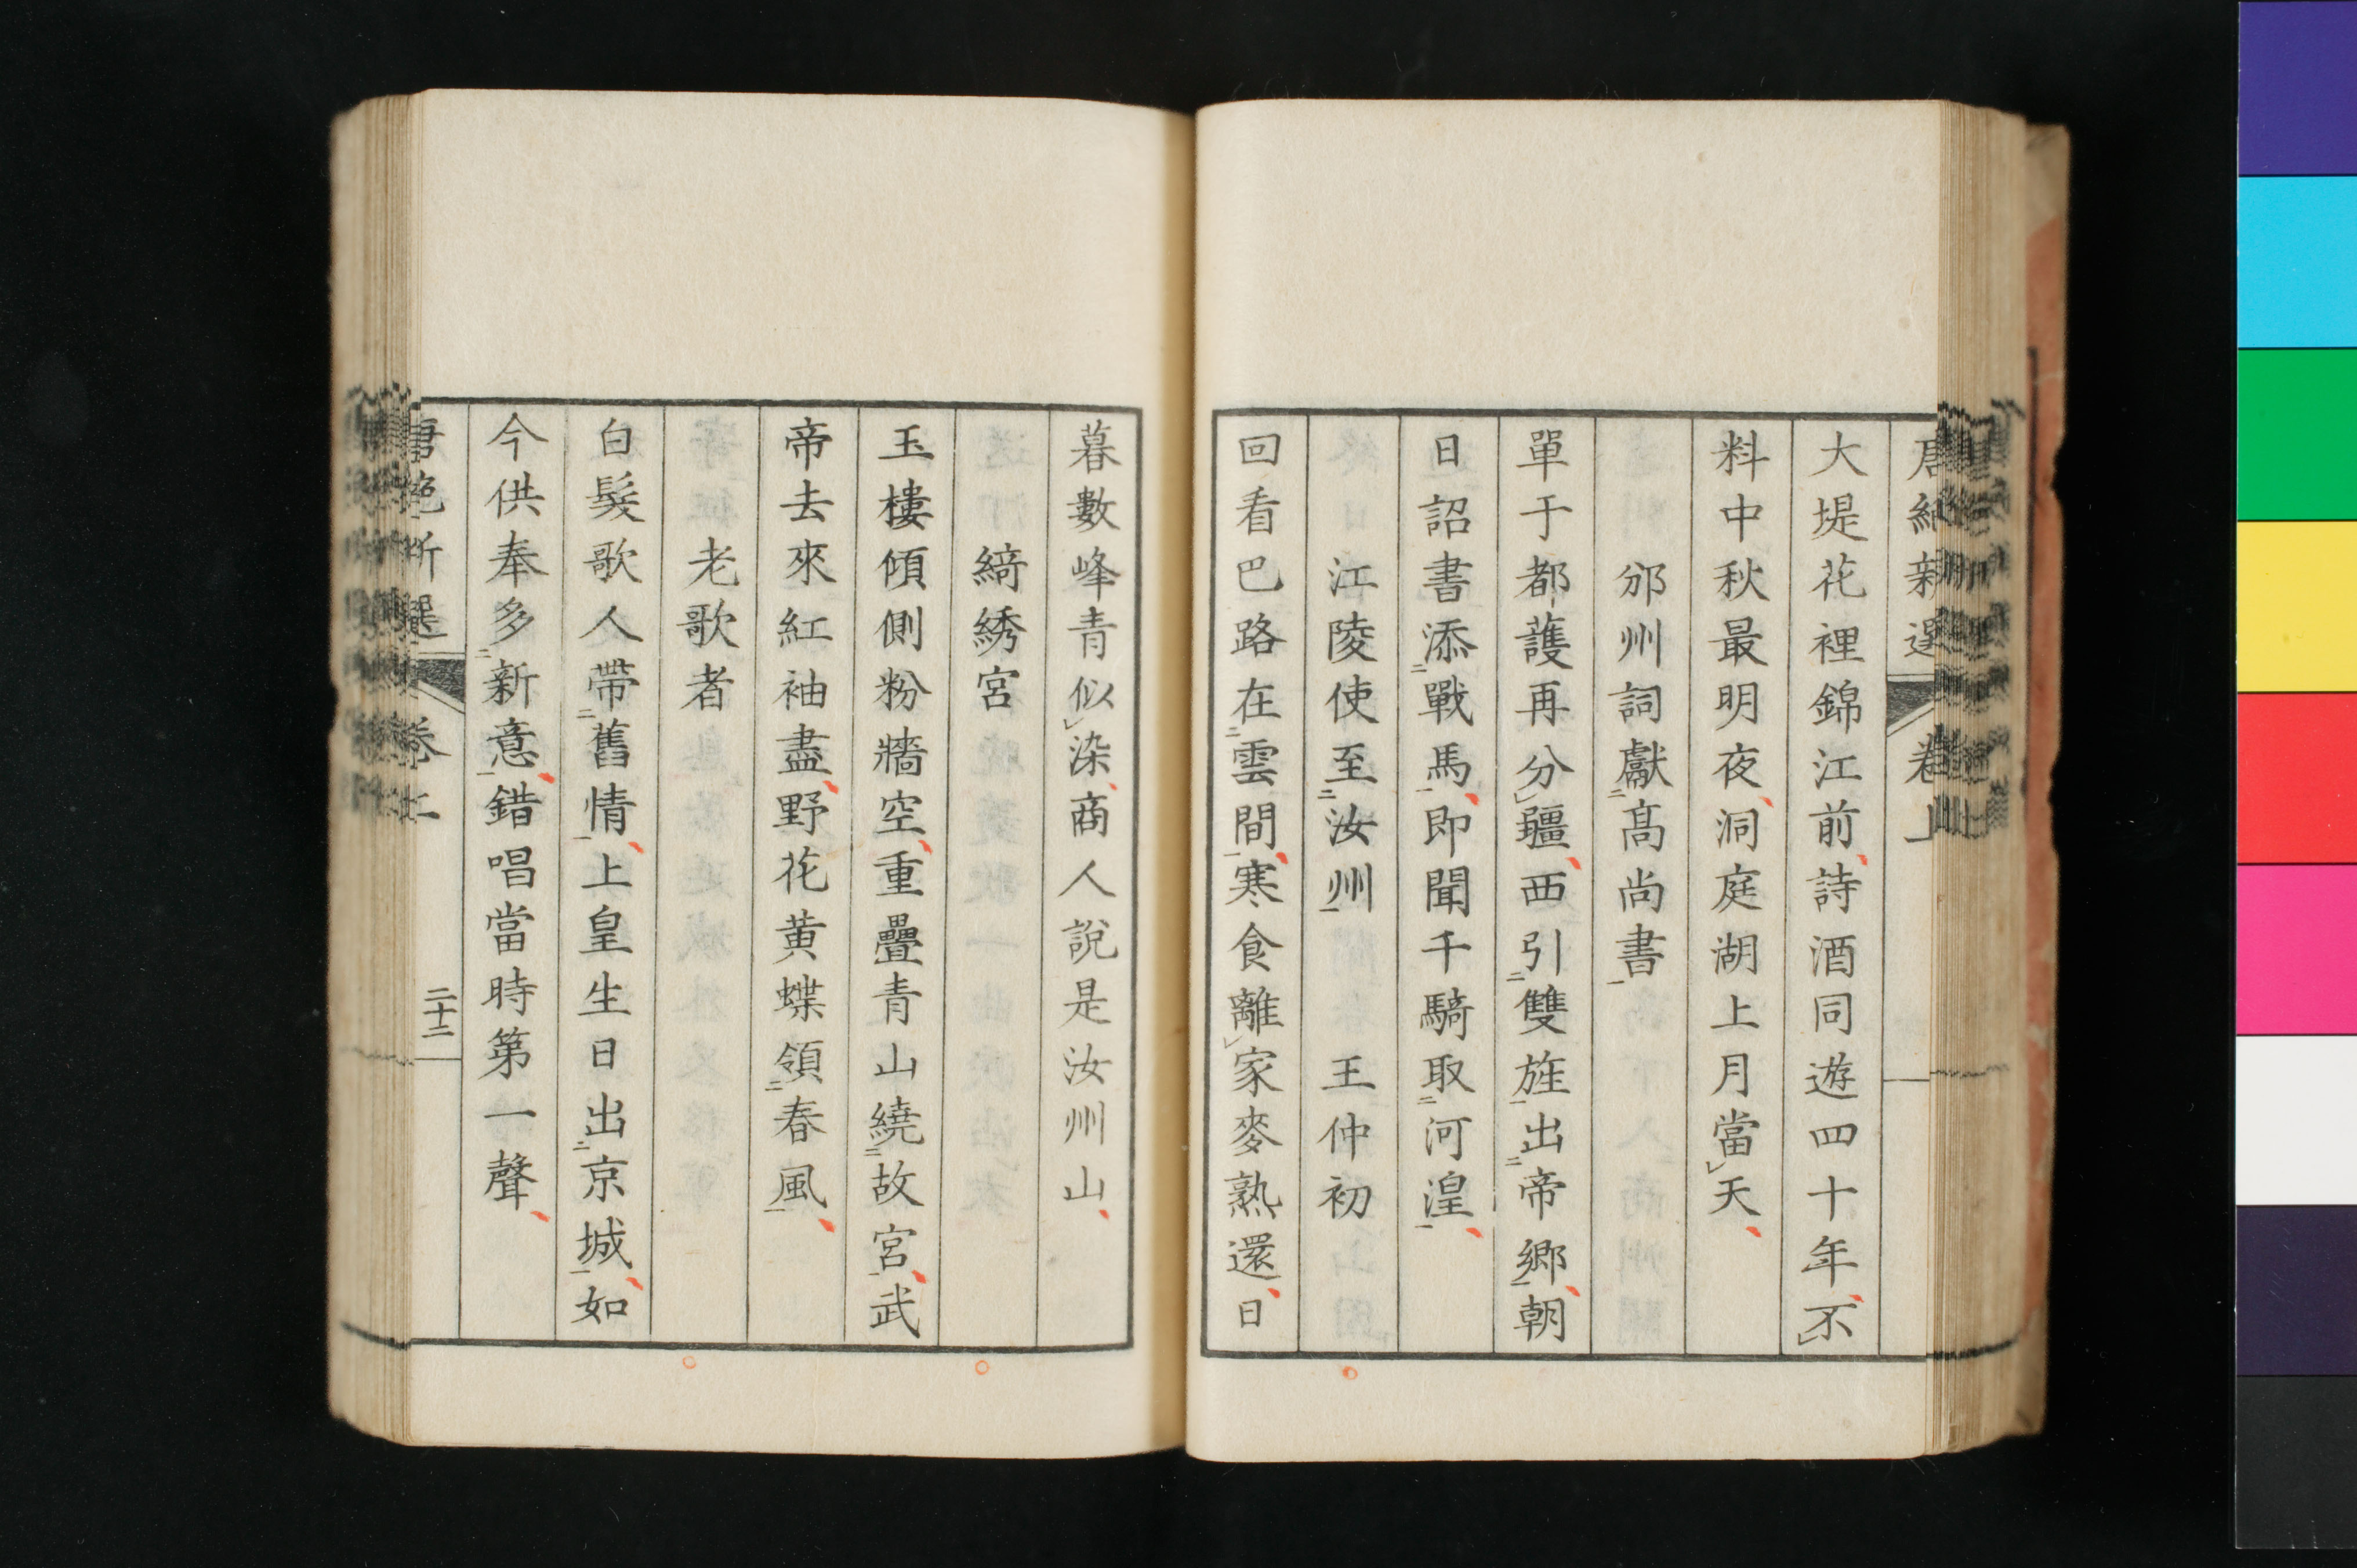 唐絶新選 卷上
大堤花裡錦江前詩酒同遊四十年不
料中秋最明夜洞庭湖上月當天
邠州詞獻高尚書
單于都護再分疆西引雙旌出帝鄉朝
日詔書添戰馬即聞千騎取河湟
江陵使至汝州 王仲初
回看巴路在雲間寒食離家麥熟還日
暮數峰青似染商人說是汝州山
綺綉宮
玉樓傾側粉牆空重疊青山繞故宮武
帝去來紅袖盡野花黃蝶領春風
老歌者
白髮歌人帶舊情上皇生日出京城如
今供奉多新意錯唱當時第一聲
唐絶新選 卷上 二十二